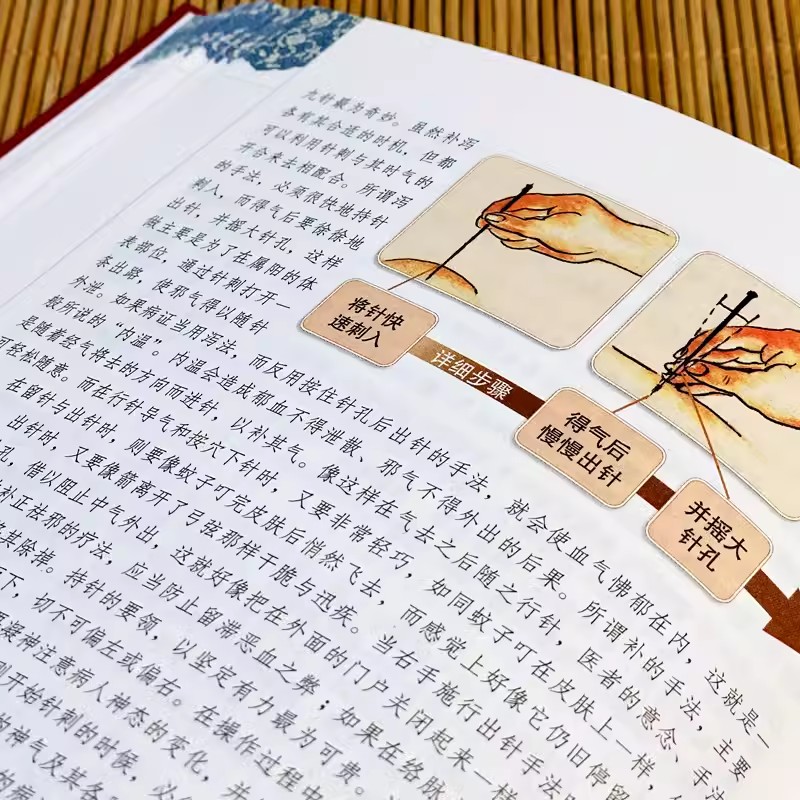 九针最为奇妙。虽然补泻
各有其合适的时机，但都
可以利用针刺与其时气的
开合来去相配合。所谓泻
的手法，必须很快地持针
刺入，而得气后要徐徐地
出针，并摇大针孔，这样
做主要是为了在属阳的体
表部位，通过针刺打开一
条出路，使邪气得以随针
外泄。如果病证当用泻法，而反用按住针孔后出针的手法，就会使血气怫郁在内，这就是一
般所说的“内温”。内温会造成郁血不得泄散、邪气不得外出的后果。所谓补的手法，主要
是随着经气将去的方向而进针，以补其气。像这样在气去之后随之行针，医者的意念、手法
可轻松随意。而在行针导气和按穴下针时，又要非常轻巧，如同蚊子叮在皮肤上一样，
在留针与出针时，则要像蚊子叮完皮肤后悄然飞去，而感觉上好像它仍旧停留
出针时，又要像箭离开了弓弦那样干脆与迅疾。当右手施行出针手法
孔，借以阻止中气外出，这就好像把在外面的门户关闭起来一样
补正祛邪的疗法，应当防止留滞恶血之弊；如果在络脉
其除掉。持针的要领，以坚定有力最为可贵。
下，切不可偏左或偏右。在操作过程中
凝神注意病人神态的变化，并
开始针刺的时候，必
的神气及其各
的病
将针快
速刺入
详细步骤
得气后
慢慢出针
并摇大
针孔